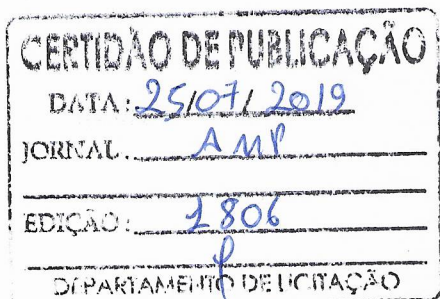 CERTIDÃO DE PUBLICAÇÃO
DATA: 25/07/2019
JORNAL: AMP
EDIÇÃO: 1806
DEPARTAMENTO DE LICITAÇÃO